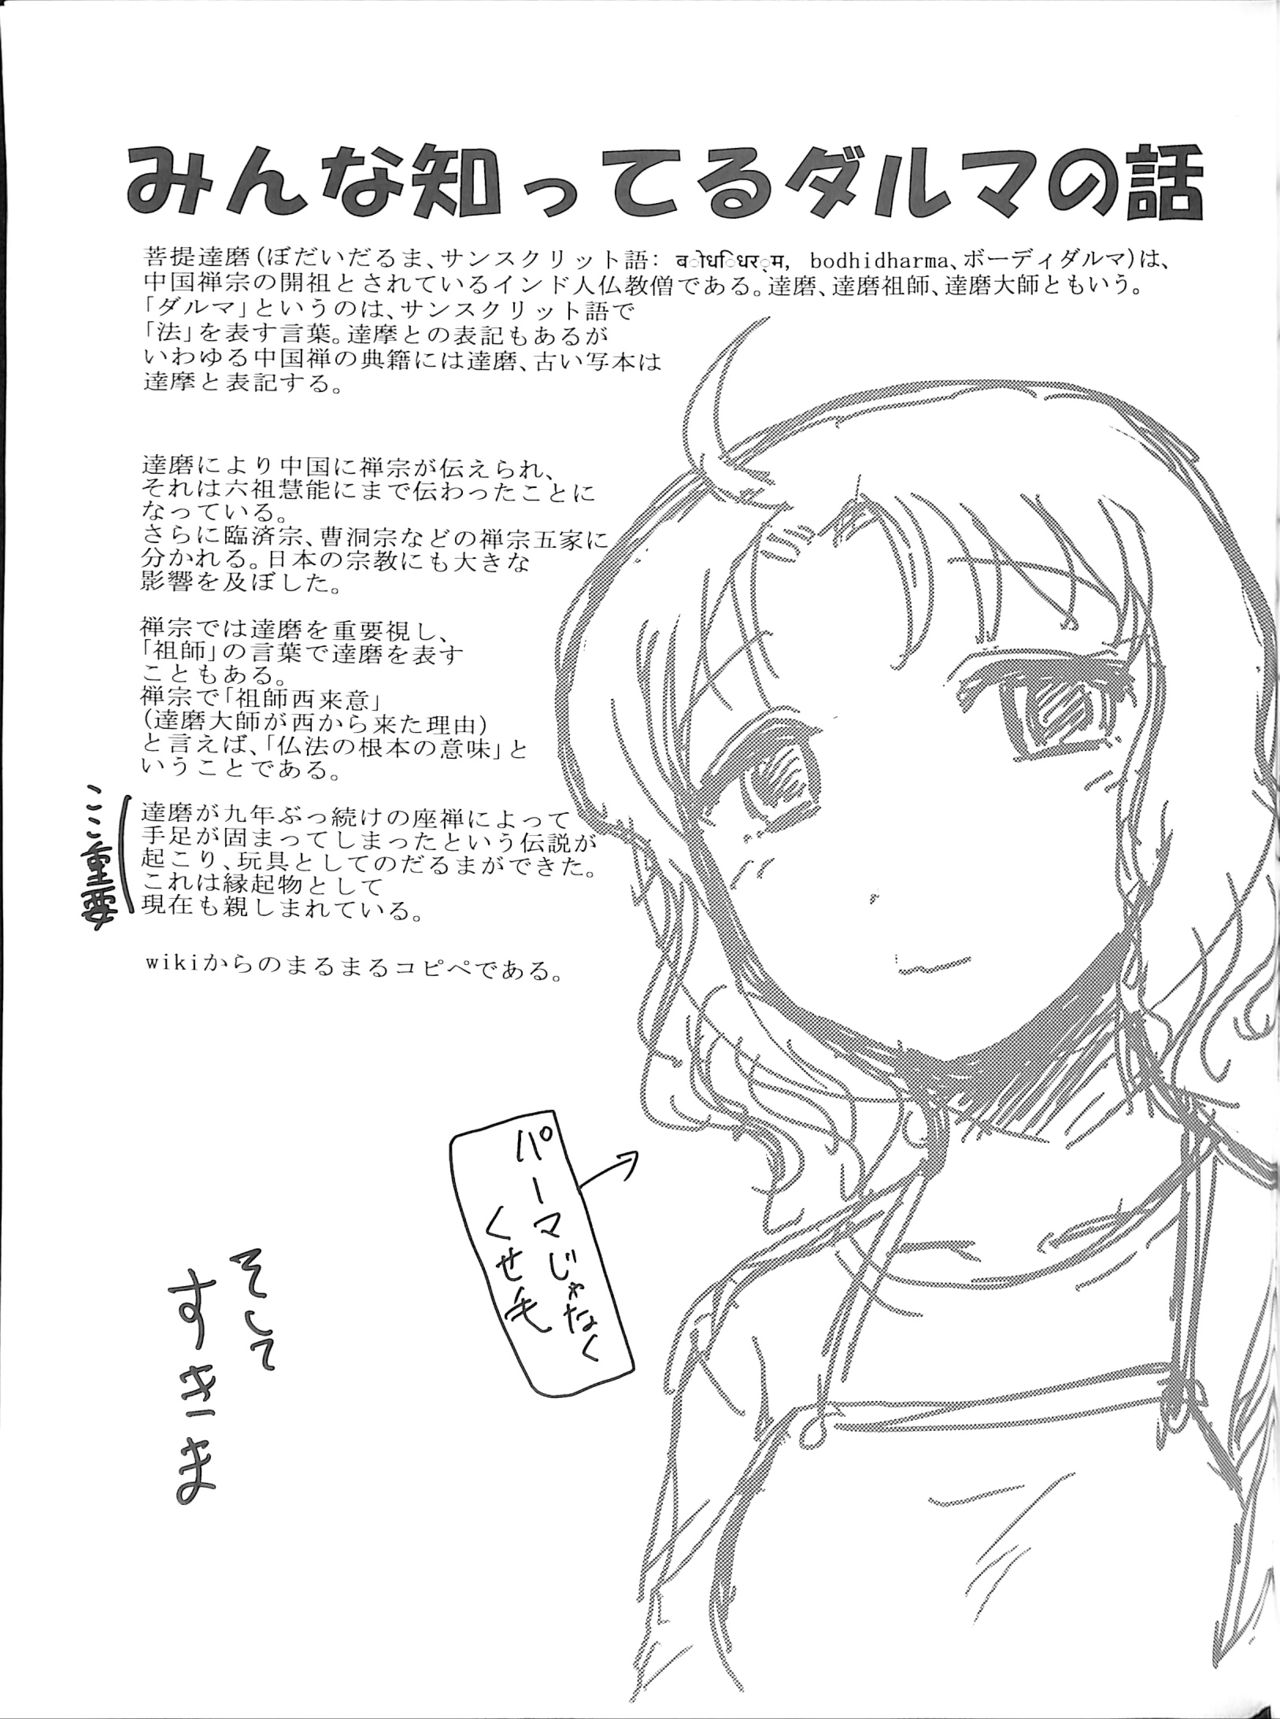 みんな知ってるダルマの話
菩提達磨(ぼだいだるま、サンスクリット語: बोधिधर्म, bodhidharma、ボーディダルマ)は、
中国禅宗の開祖とされているインド人仏教僧である。達磨、達磨祖師、達磨大師ともいう。
「ダルマ」というのは、サンスクリット語で
「法」を表す言葉。達摩との表記もあるが
いわゆる中国禅の典籍には達磨、古い写本は
達摩と表記する。
達磨により中国に禅宗が伝えられ、
それは六祖慧能にまで伝わったことに
なっている。
さらに臨済宗、曹洞宗などの禅宗五家に
分かれる。日本の宗教にも大きな
影響を及ぼした。
禅宗では達磨を重要視し、
「祖師」の言葉で達磨を表す
こともある。
禅宗で「祖師西来意」
(達磨大師が西から来た理由)
と言えば、「仏法の根本の意味」と
いうことである。
ここ重要
達磨が九年ぶっ続けの座禅によって
手足が固まってしまったという伝説が
起こり、玩具としてのだるまができた。
これは縁起物として
現在も親しまれている。
wikiからのまるまるコピペである。
パーマじゃなく
くせ毛
そして
すきま